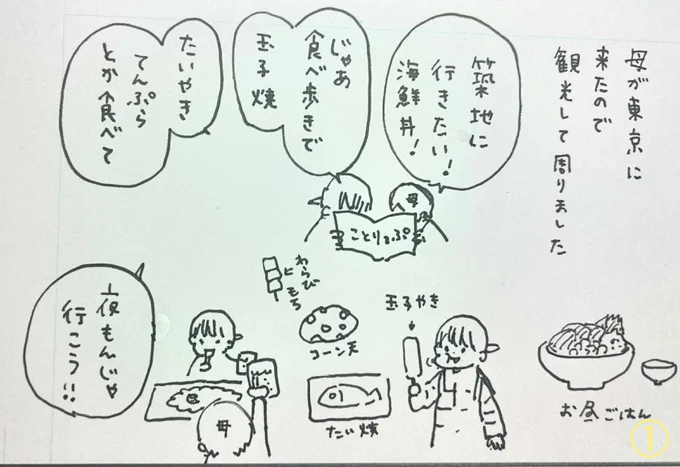 母が東京に
来たので
観光して周りました
築地に
行きたい!
海鮮丼!
母
じゃあ
食べ歩きで
玉子焼
たいやき
てんぷら
とか食べて
ことりっぷ
わらび
もち
コーン天
玉子やき
たい焼
お昼ごはん
夜もんじゃ
行こう!!
母
①